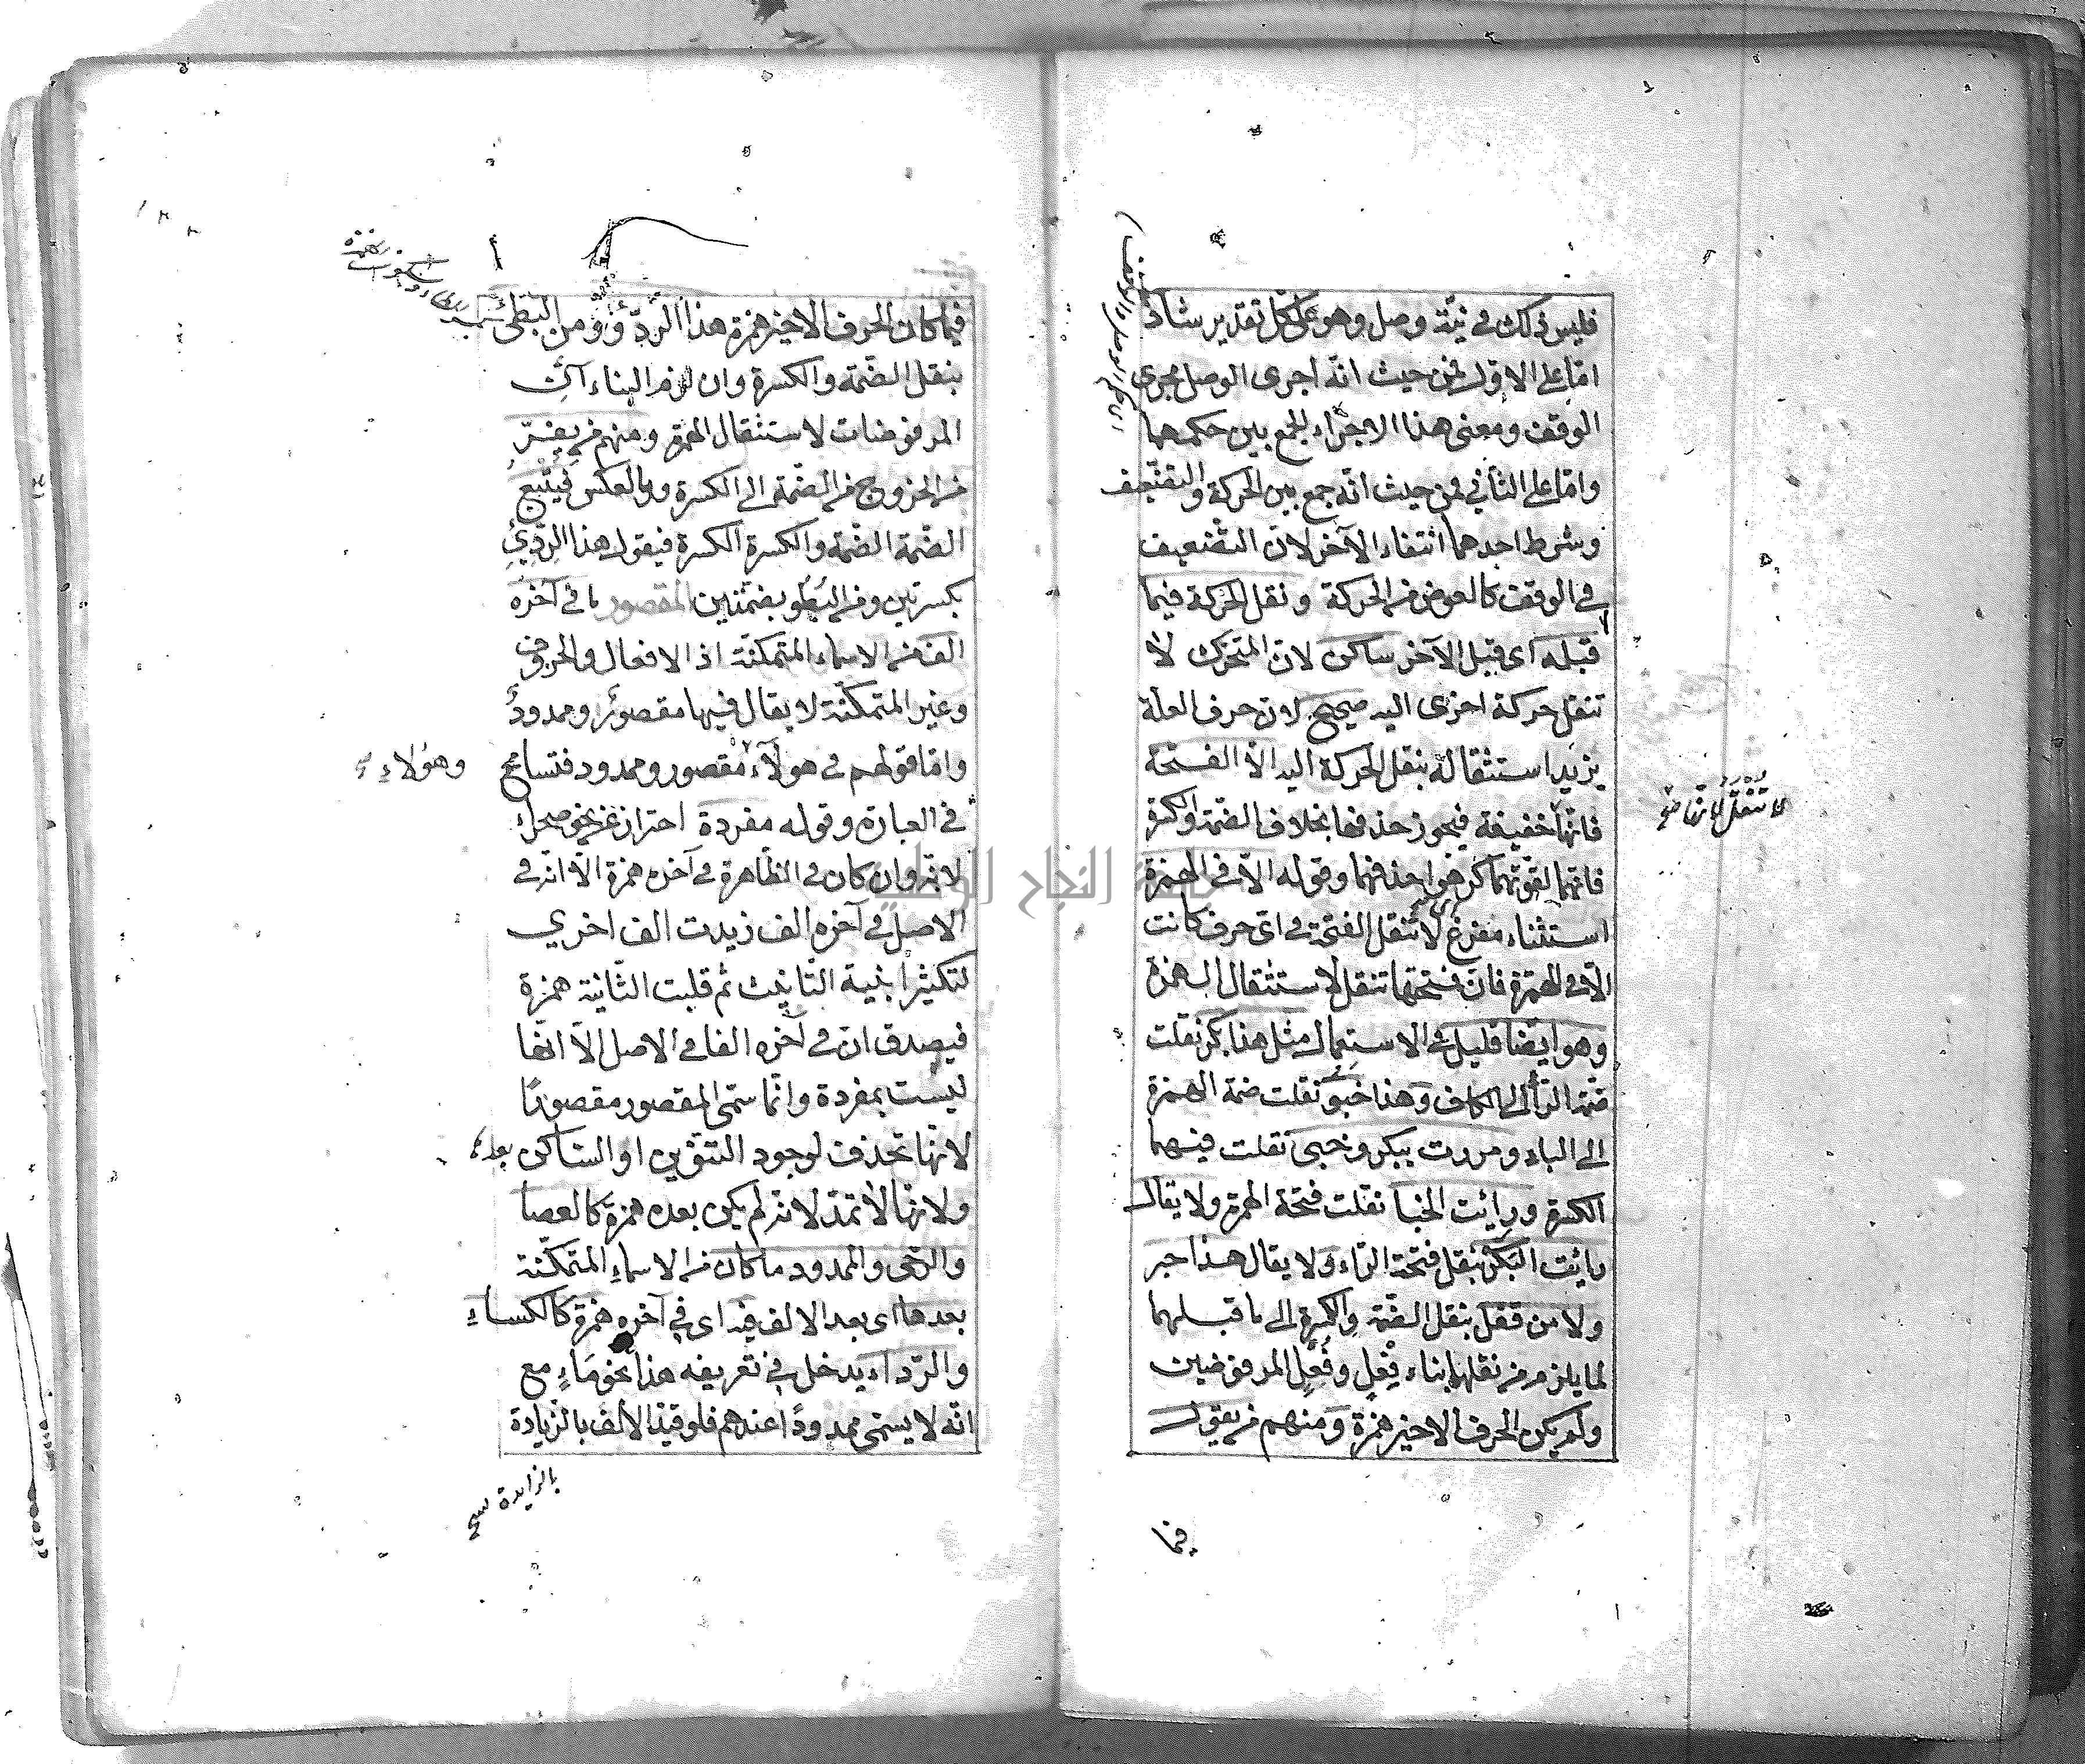 فليس ذلك في نيّة وصل وهو على كل تقدير شاذ
امّا على الاوّل فمن حيث انّه اجرى الوصل مجرى
الوقف ومعنى هذا الاجراء الجمع بين حكمهما
وامّا على الثاني فمن حيث انّه جمع بين الحركة والتضعيف
وشرط احدهما انتفاء الآخر لان التضعيف
في الوقف كالعوض من الحركة ونقل الحركة فيما
قبله اى قبل الآخر ساكن لانّ المتحرك لا
تنقل حركة اخرى اليه صحيح لان حرف العلّة
يزيد استثقاله بنقل الحركة اليه الاّ الفتحة
فانّها خفيفة فيجوز حذفها بخلاف الضمّة والكسرة
فانّهما لقوّتهما كرهوا حذفهما وقوله الاّ في الهمزة
استثناء مفرغ اى لا تنقل الفتحة في اىّ حرف كانت
الاّ في الهمزة فانّ فتحتها تنقل لاستثقال الهمزة
وهو ايضا قليل في الاستعمال مثل هذا بكر نقلت
ضمّة الرّاء الى الكاف وهذا خبؤ نقلت ضمة الهمزة
الى الباء ومررت ببكر وخبى نقلت فيهما
الكسرة ورايت الخبا نقلت فتحة الهمزة ولا يقال
رايت البكر بنقل فتحة الرّاء ولا يقال هذا حبر
ولا من قفل بنقل الضّمّة والكسرة الى ما قبلهما
لما يلزم من نقلها بناء فِعُل وفُعِل المرفوضين
ولم يكن الحرف الاخير همزة ومنهم من يقول
فيما
فيما كان الحرف الاخير همزة هذا الرّدؤ ومن البطئ
بنقل الضّمّة والكسرة وان لزم البناء آن
المرفوضات لاستثقال الهمزة ومنهم من يفرّ
من الخروج من الضّمّة الى الكسرة وبالعكس فيُتبع
الضّمّة الضّمّة والكسرة الكسرة فيقول هذا الرّدِئ
بكسرتين ومن البُطُو بضمّتين المقصور ما في آخره
الف من الاسماء المتمكنّة اذ الافعال والحروف
وغير المتمكنّة لا يقال فيها مقصور وممدود
وامّا قولهم في هولآء مقصور وممدود فتسامح
وهؤلاء
في العبارة وقوله مفردة احتراز عن نحو صحراء
لانّه وان كان في الظّاهرة في آخره همزة الاّ انّه في
الاصل في آخره الف زيدت الف اخرى
لتكثير ابنية التّانيث ثم قلبت الثّانية همزة
فيصدق انّ في آخره الفا في الاصل الاّ انّها
ليست بمفردة وانّما سمّى المقصور مقصورًا
لانّها تحذف لوجود التنوين او السّاكن بعدها
ولانّها لا تمدّ لانّه لم يكن بعده همزة كالعصا
والرّحى والممدود ما كان من الاسماء المتمكنّة
بعدها اى بعد الالف فيه اى في آخره همزة كالكساء
والرّداء يدخل في تعريفه هذا نحو ماءٍ مع
انّه لا يسمّى ممدودًا عندهم فلو قيّد الالف بالزّيادة
بالزايدة
جامعة النجاح الوطنية